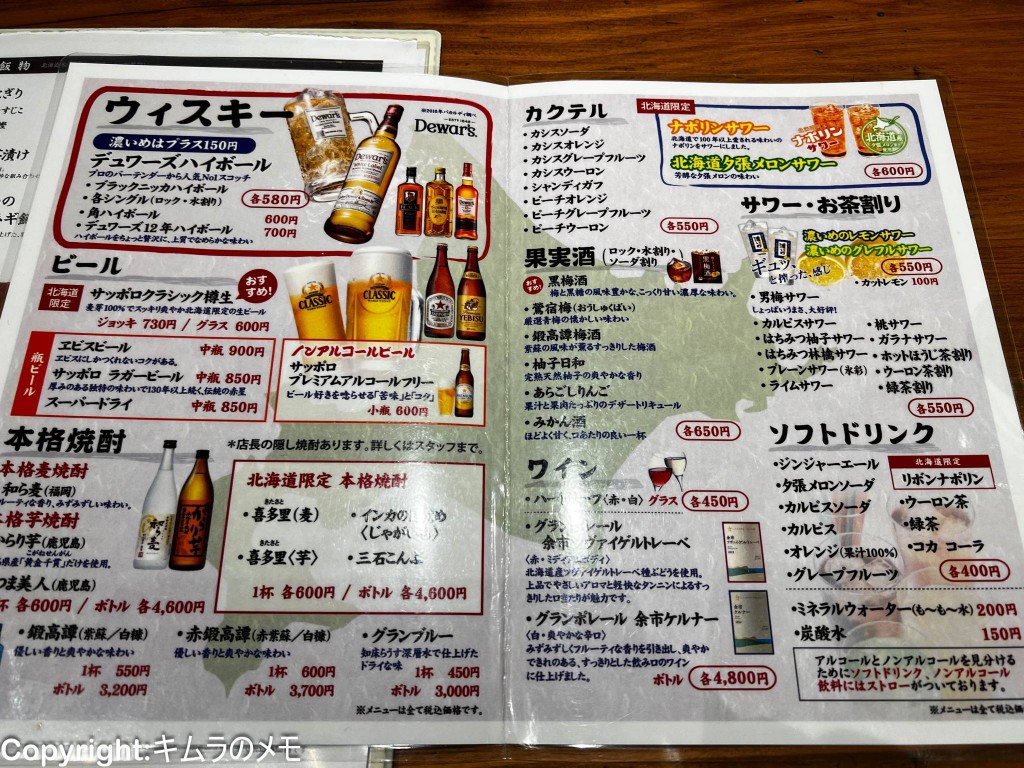 飯物
ウィスキー
濃いめはプラス150円
デュワーズハイボール
プロのバーテンダーから人気No1スコッチ
・ブラックニッカハイボール
・各シングル(ロック・水割り) 各580円
・角ハイボール 600円
・デュワーズ12年ハイボール 700円
ハイボールをちょっと贅沢に、上質でなめらかな味わい
Dewar's
Dewar's.
ビール
北海道限定
サッポロクラシック樽生
麦芽100%でスッキリ爽やか北海道限定の生ビール
ジョッキ 730円 / グラス 600円
おすすめ!
CLASSIC
CLASSIC
YEBISU
瓶ビール
ヱビスビール 中瓶 900円
ヱビスにしかつくれないコクがある。
サッポロ ラガービール 中瓶 850円
厚みのある独特の味わいで130年以上続く、伝統の赤星
スーパードライ 中瓶 850円
ノンアルコールビール
サッポロ
プレミアムアルコールフリー
ビール好きを唸らせる「苦味」と「コク」
小瓶 600円
本格焼酎
*店長の隠し焼酎あります。詳しくはスタッフまで。
本格麦焼酎
和ら麦(福岡)
ルーティな香り、みずみずしい味わい。
本格芋焼酎
からり芋(鹿児島)
こがねせんがん
島県産「黄金千貫」だけを使用。
つま美人(鹿児島)
杯 各600円 / ボトル 各4,600円
北海道限定 本格焼酎
きたさと
・喜多里(麦)
・インカの
〈じゃがい
きたさと
・喜多里〈芋〉
・三石こんぶ
1杯 各600円 / ボトル 各4,600円
・鍛高譚(紫蘇/白糠)
優しい香りと爽やかな味わい
1杯 550円
ボトル 3,200円
・赤鍛高譚(赤紫蘇/白糠)
優しい香りと爽やかな味わい
1杯 600円
ボトル 3,700円
・グランブルー
知床らうす深層水で仕上げた
ドライな味
1杯 450円
ボトル 3,000円
※メニューは全て税込価格です。
カクテル
・カシスソーダ
・カシスオレンジ
・カシスグレープフルーツ
・カシスウーロン
・シャンディガフ
・ピーチオレンジ
・ピーチグレープフルーツ
・ピーチウーロン
各550円
北海道限定
ナポリンサワー
北海道で100年以上愛される味わいの
ナポリンをサワーにしました。
北海道夕張メロンサワー
芳醇な夕張メロンの味わい
各600円
ナポリン
サワー
果実酒(ロック・水割り・ソーダ割り)
おすすめ!
・黒梅酒
梅と黒糖の風味豊かな、こっくり甘い濃厚な味わい。
・鶯宿梅(おうしゅくばい)
厳選青梅の懐かしい味わい
・鍛高譚梅酒
紫蘇の風味が薫るすっきりした梅酒
・柚子日和
完熟天然柚子の爽やかな香り
・あらごしりんご
果汁と果肉たっぷりのデザートリキュール
・みかん酒
ほどよく甘く、口あたりの良い一杯
各650円
サワー・お茶割り
濃いめのレモンサワー
濃いめのグレフルサワー
各550円
・カットレモン 100円
ギュッと搾った感じ
・男梅サワー
しょっぱいうまさ、大好評!
・カルピスサワー
・はちみつ柚子サワー
・はちみつ林檎サワー
・プレーンサワー(氷彩)
・ライムサワー
・桃サワー
・ガラナサワー
・ホットほうじ茶割り
・ウーロン茶割り
・緑茶割り
各550円
ワイン
グラス 各450円
余市ツヴァイゲルトレーベ
北海道産ツヴァイゲルトレーベ種ぶどうを使用。
上品でやさしいアロマと軽快なタンニンによるすっ
きりした口当たりが魅力です。
・グランポレール 余市ケルナー
〈白・爽やかな辛口〉
みずみずしくフルーティな香りを引き出し、爽やか
できれのある、すっきりとした飲み口のワイン
に仕上げました。
ボトル 各4,800円
ソフトドリンク
・ジンジャーエール
・夕張メロンソーダ
・カルピスソーダ
・カルピス
・オレンジ(果汁100%)
・グレープフルーツ
北海道限定
リボンナポリン
・ウーロン茶
・緑茶
・コカ コーラ
各400円
・ミネラルウォーター(も〜も〜水) 200円
・炭酸水 150円
アルコールとノンアルコールを見分ける
ためにソフトドリンク、ノンアルコール
飲料にはストローがついております。
※メニューは全て税込価
Copyright:キムラのメモ